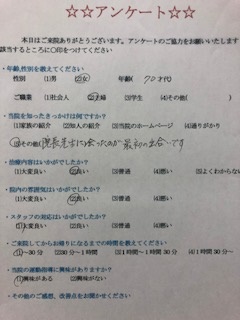 ☆☆アンケート☆☆
本日はご来院ありがとうございます。アンケートのご協力をお願いいたします
該当するところに○印をつけてください
・年齢,性別を教えてください
性別 (1)男 (2)女 年齢( 70才代
ご職業 (1)社会人 (2)主婦 (3)学生 (4)その他(
・当院を知ったきっかけは何ですか？
(1)家族の紹介 (2)知人の紹介 (3)当院のホームページ (4)通りがかり
(5)その他( 院長先生に会ったのが最初の出会いです
・治療内容はいかがでしたか？
(1)大変良い (2)良い (3)普通 (4)悪い (5)よくわからない
・院内の雰囲気はいかがでしたか？
(1)大変良い (2)良い (3)普通 (4)悪い
・スタッフの対応はいかがでしたか？
(1)大変良い (2)良い (3)普通 (4)悪い
・ご来院してからお帰りになるまでの時間を教えてください
(1)～30分 (2)30分～1時間 (3)1時間～1時間30分 (4)1時間30分～
・当院の運動指導に興味がありますか？
(1)興味がある (2)興味がない
・その他のご感想、改善点をお聞かせください